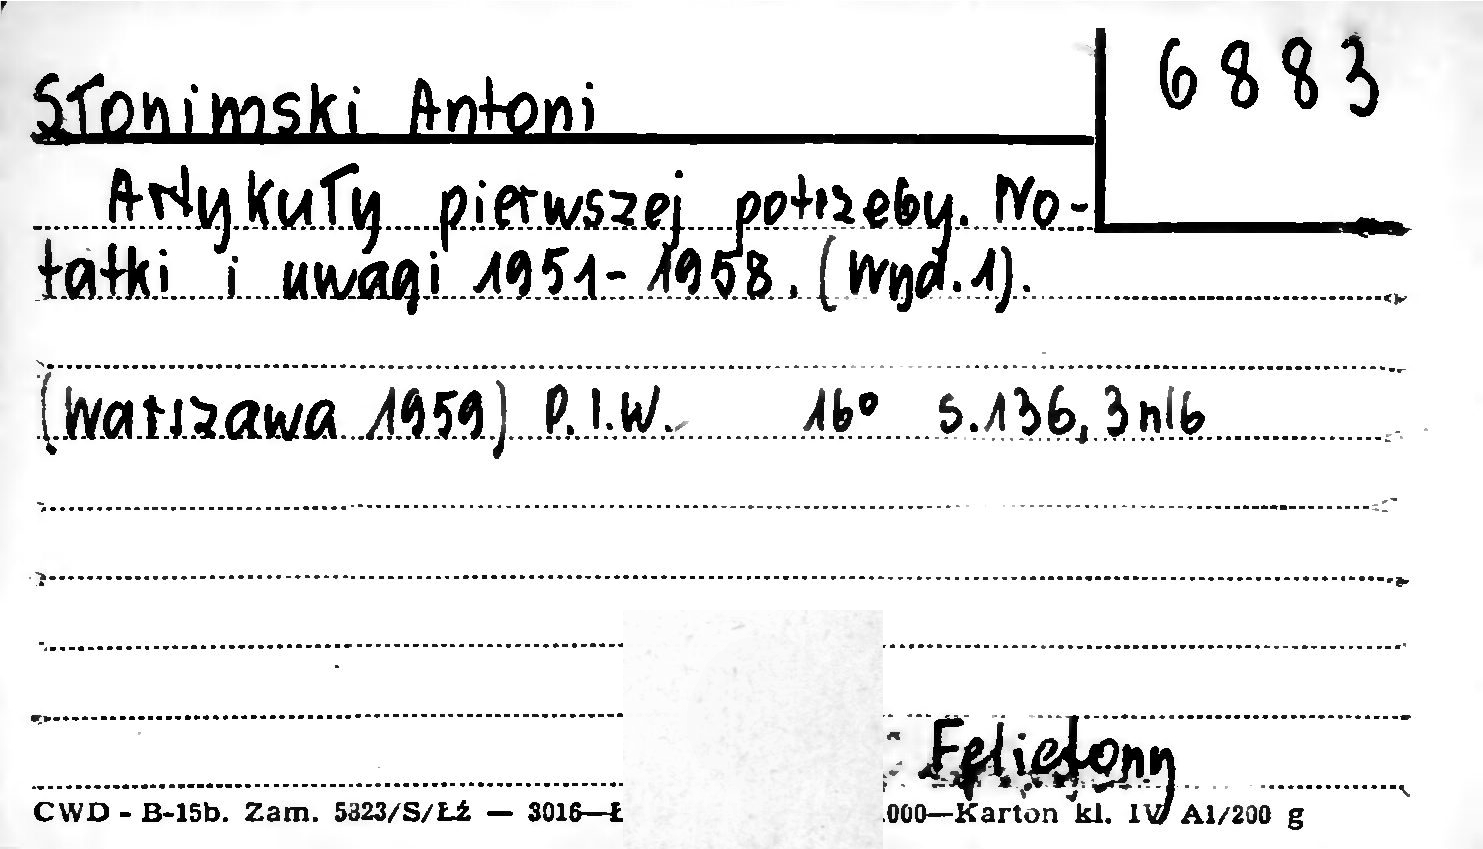 6883
Słonimski Antoni
Artykuły pierwszej potrzeby. No-
tatki i uwagi 1951-1958. (Wyd. 1).
(Warszawa 1959) P.I.W. 16° s. 136, 3 nlb
Felietony
CWD - B-15b. Zam. 5323/S/ŁŻ — 3016—Ł .000—Karton kl. IV A1/200 g